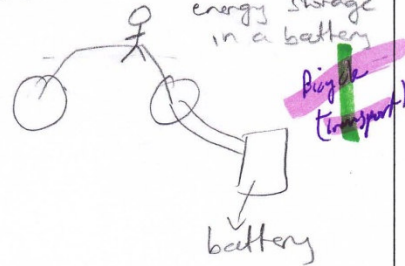 energy storage
in a battery
Bicycle
(transport)
battery